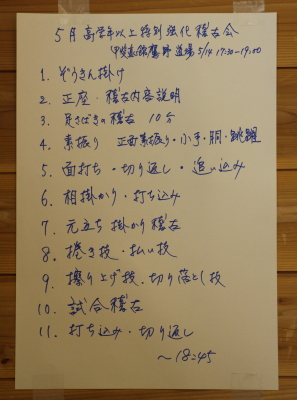 5月高学年以上特別強化稽古会
道場 5/14 17:30-19:00
1. ぞうきん掛け
2. 正座・稽古内容説明
3. 足さばきの稽古 10分
4. 素振り 正面素振り・小手・胴・跳躍
5. 面打ち・切り返し・追い込み
6. 相掛かり・打ち込み
7. 元立ち掛かり稽古
8. 捲き技・払い技
9. 擦り上げ技・切り落とし技
10. 試合稽古
11. 打ち込み・切り返し
～18:45